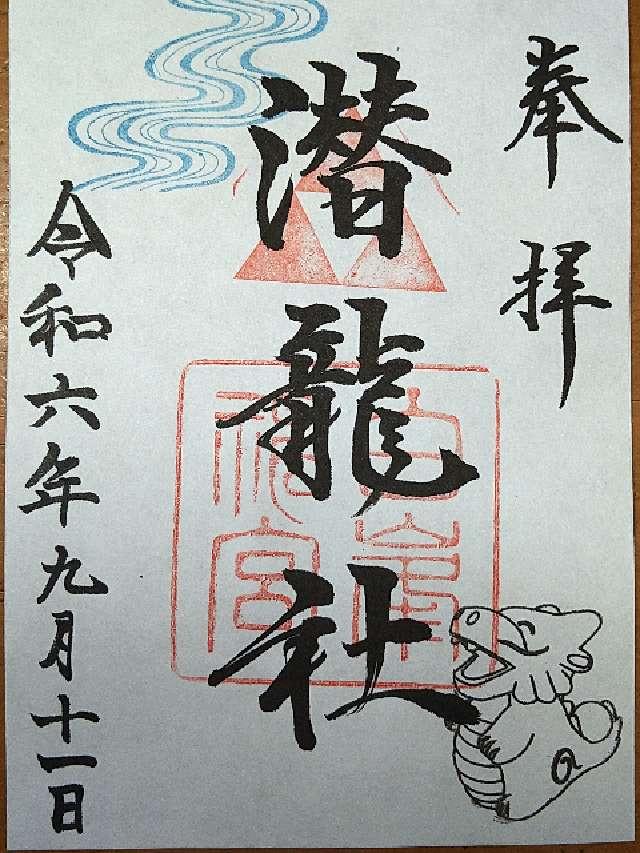 奉拝
潜龍社
令和六年九月十一日